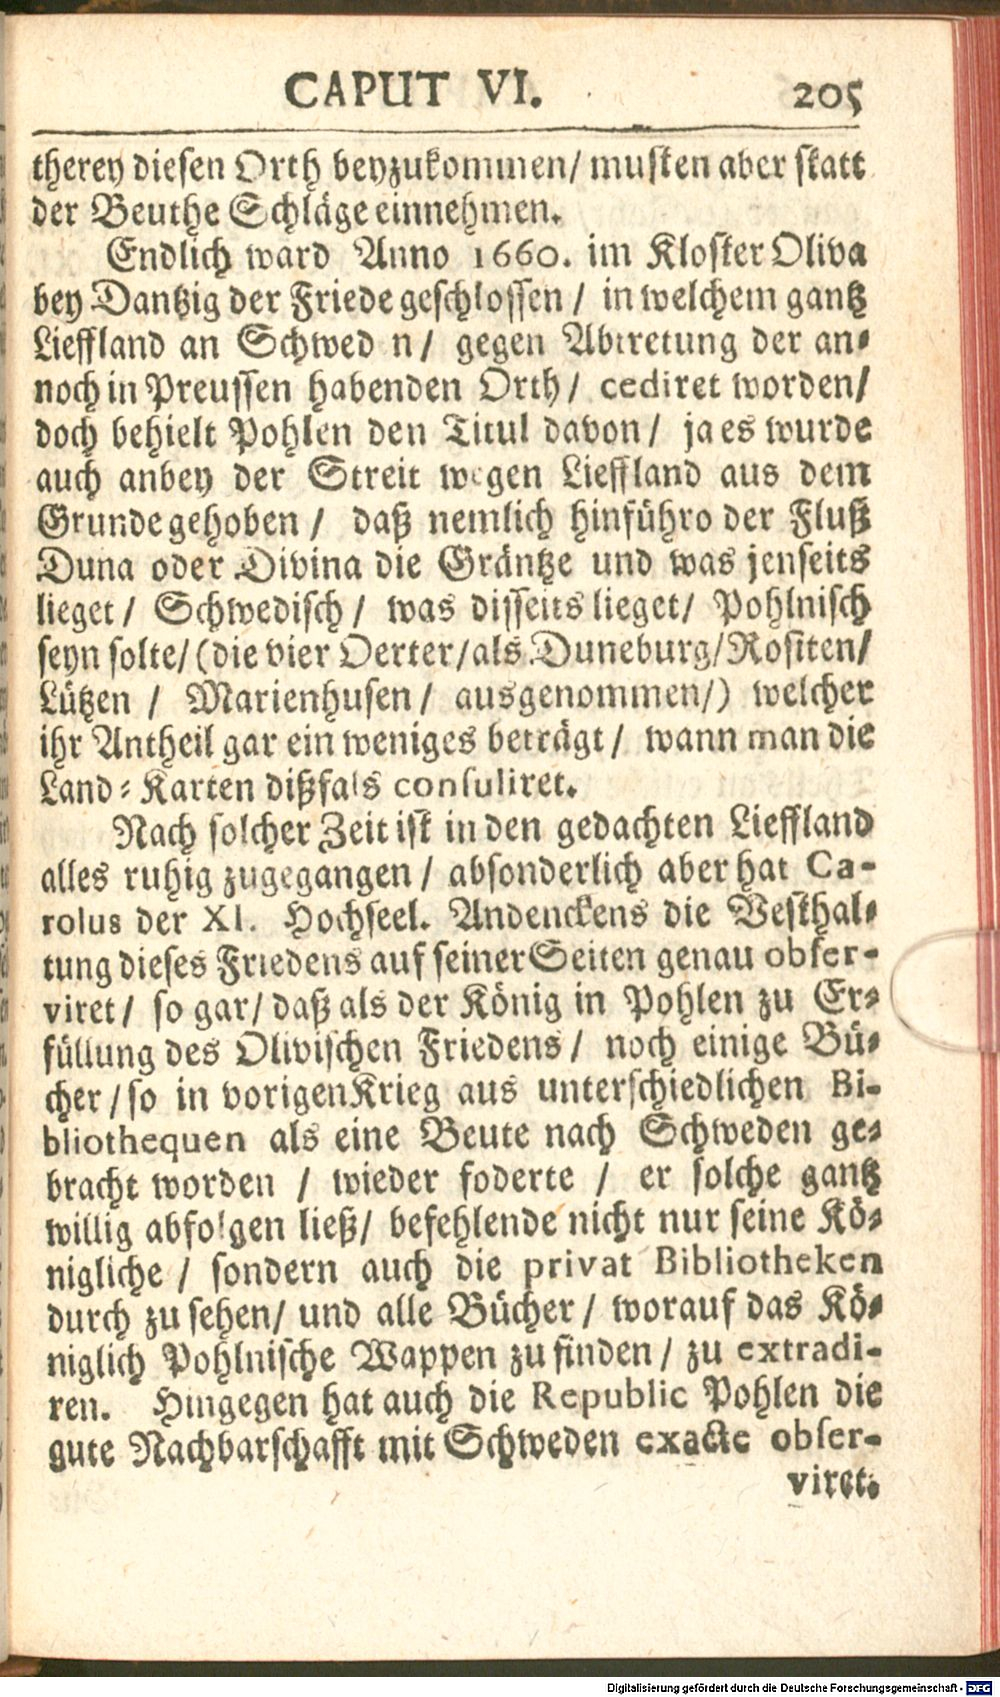 CAPUT VI. 205
therey diesen Orth beyzukommen/ musten aber statt
der Beuthe Schläge einnehmen.
Endlich ward Anno 1660. im Kloster Oliva
bey Dantzig der Friede geschlossen / in welchem gantz
Lieffland an Schwed n/ gegen Abtretung der an-
noch in Preussen habenden Orth/ cediret worden/
doch behielt Pohlen den Titul davon/ ja es wurde
auch anbey der Streit wegen Lieffland aus dem
Grunde gehoben / daß nemlich hinführo der Fluß
Duna oder Divina die Gräntze und was jenseits
lieget/ Schwedisch/ was disseits lieget/ Pohlnisch
seyn solte/ (die vier Oerter/als Duneburg/Rositen/
Lützen / Marienhusen/ ausgenommen/) welcher
ihr Antheil gar ein weniges beträgt/ wann man die
Land-Karten dißfals consuliret.
Nach solcher Zeit ist in den gedachten Lieffland
alles ruhig zugegangen / absonderlich aber hat Ca-
rolus der XI. Hochseel. Andenckens die Vesthal-
tung dieses Friedens auf seiner Seiten genau obser-
viret/ so gar/ daß als der König in Pohlen zu Er-
füllung des Olivischen Friedens/ noch einige Bü-
cher/so in vorigen Krieg aus unterschiedlichen Bi-
bliothequen als eine Beute nach Schweden ge-
bracht worden / wieder foderte / er solche gantz
willig abfolgen ließ/ befehlende nicht nur seine Kö-
nigliche / sondern auch die privat Bibliotheken
durch zu sehen/ und alle Bücher/ worauf das Kö-
niglich Pohlnische Wappen zu finden/ zu extradi-
ren. Hingegen hat auch die Republic Pohlen die
gute Nachbarschafft mit Schweden exacte obser-
viret.
Digitalisierung gefördert durch die Deutsche Forschungsgemeinschaft - DFG